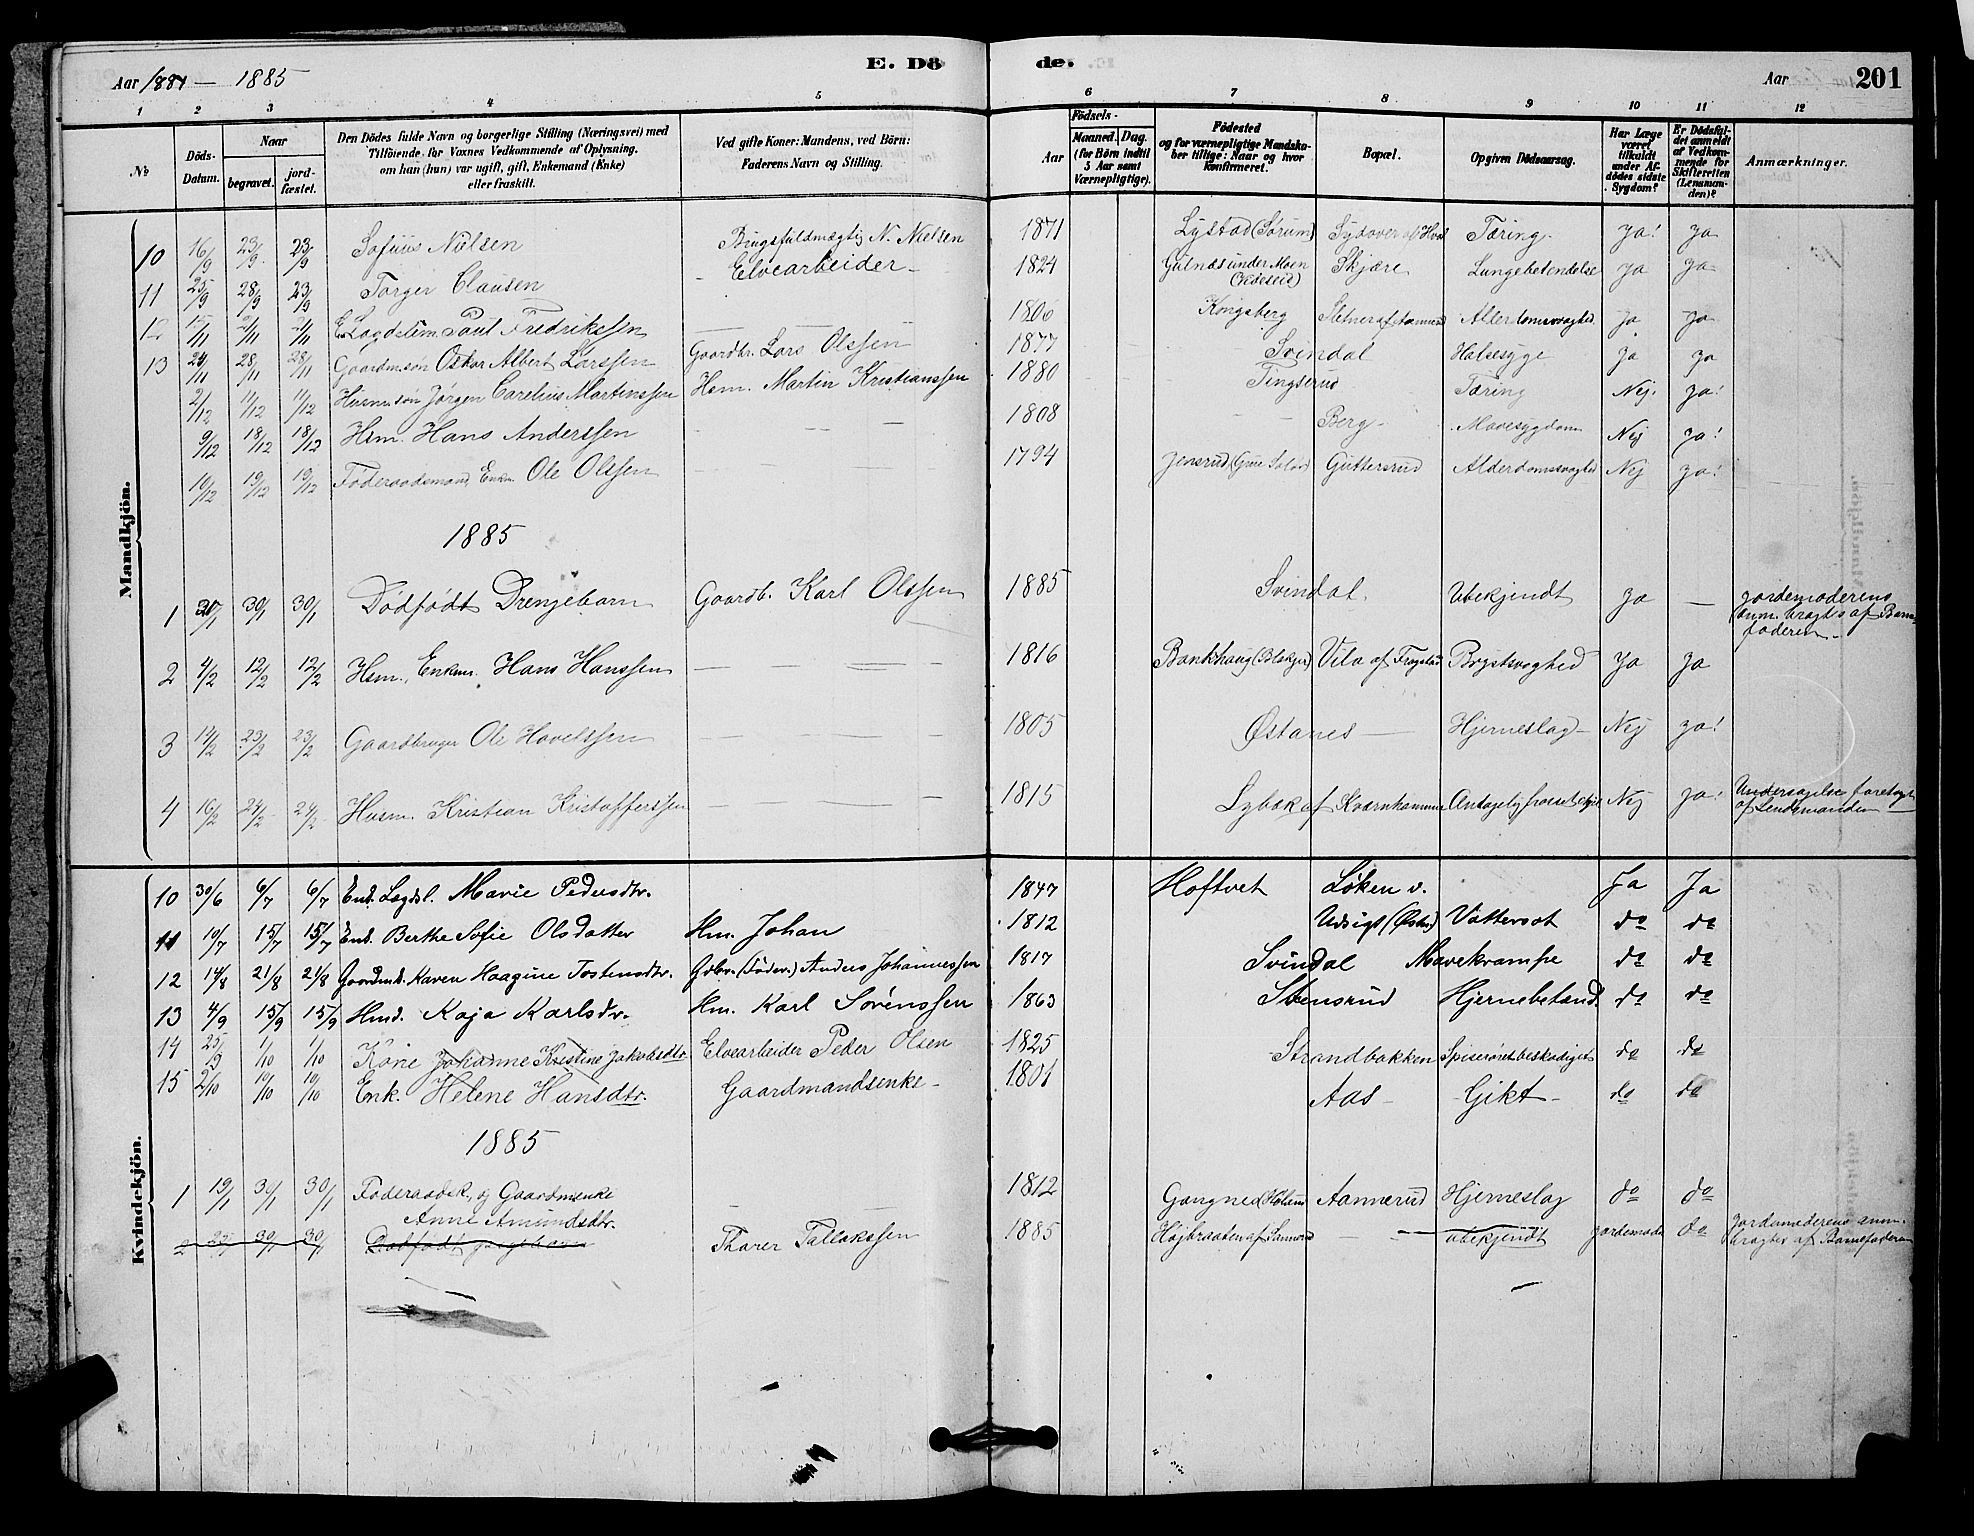 Aar 1884 — 1885 E. Dö de. Aar 201
1 2 3 4 5 6 7 8 9 10 11 12
No Döds-Datum. Naar begravet. jord-fæstet. Den Dödes fulde Navn og borgerlige Stilling (Næringsvei) med Tilföiende for Voxnes Vedkommende af Oplysning, om han (hun) var ugift, gift, Enkemand (Enke) eller fraskilt. Ved gifte Koner: Mandens, ved Börn: Faderens Navn og Stilling. Födsels- Aar Maaned. Dag. (for Börn indtil 5 Aar samt Værnepligtige). Födested og for værnepligtige Mandskaber tillige: Naar og hvor konfirmeret. Bopæl. Opgiven Dödsaarsag. Har Læge været tilkaldt under Afdödes sidste Sygdom? Er Dödsfaldet anmeldt af Vedkommende for Skifteretten (Lensmanden)? Anmærkninger.
Mandkjön.
10 16/9 23/9 23/9 Sofius Nielsen Brugsfuldmægtig N. Nielsen 1871 Lystad (Sørum) Tæring Ja! Ja
11 25/9 28/9 23/9 Torger Clausen – Elvearbeider – 1824 Gulnæs under Moen (Hvideseid) Skjære Lungebetendelse ja ja
12 15/11 21/11 21/11 Lægdslem Paul Fredrikssen 1806 Kongsberg Alderdomssvaghed Ja Ja
13 21/11 28/11 28/11 Gaardm.søn Oskar Albert Larssen Gaardbr. Lars Olssen 1877 Svindal Halsesyge ja ja
2/12 11/12 11/12 Husm.søn Jørgen Carelius Martinssen Hsm. Martin Kristianssen 1880 Tingsrud Tæring Nej. ja!
9/12 18/12 18/12 Hsm. Hans Anderssen 1808 Berg Mavesygdom Nej ja!
10/12 19/12 19/12 Föderaadsmand, Enkm. Ole Olssen 1794 Jensrud Guttersrud Alderdomssvaghed Nej ja!
1885
1 30/1 30/1 30/1 Dødfødt Drengebarn Gaardb. Karl Olssen 1885 Svindal. Ubekjendt Ja — Jordemoderens anm. bragtes af Barnefaderen
2 4/2 12/2 12/2 Hsm., Enkm. Hans Hanssen 1816 Bankhaug (Blakjer) Vila af Frogstad Brystsvaghed Ja Ja
3 14/2 23/2 23/2 Gaardbruger Ole Havelssen 1805 Østanes Hjerneslag Nej ja!
4 16/2 24/2 24/2 Husm. Kristian Kristofferssen 1815 Lybæk af Kværnhammer Antagelig frosset ihjel Nej ja! Undersøgelse foretagt af Lendsmanden
Kvindekjön.
10 30/6 6/7 6/7 Enk. Lægdsl. Marie Pedersdtr. 1847 Hoftvet Løken v. Ja Ja
11 10/7 15/7 15/7 Enk. Berthe Sofie Olsdatter Hm. Johan 1812 Udsigt (Østen) Vattersot do do
12 14/8 21/8 21/8 Gaardmk. Karen Haagine Tostensdtr. Gdbr. (Föder.) Anders Johannessen 1817 Svindal Mavekrampe do do
13 4/9 15/9 15/9 Hmd. Kaja Karlsdtr. Hm. Karl Sørenssen 1863 Stensrud Hjernebetænd. do do
14 25/9 1/10 1/10 Kone Johanne Kristine Jakobsdtr. Elvearbeider Peder Olsen 1825 Strandbakken Spiserøret beskadiget do do
15 2/10 10/10 10/10 Enk. Helene Hansdtr. Gaardmandsenke – 1801 Aas – Gikt – do do
1885
1 19/1 30/1 30/1 Föderaadsk. og Gaardmenke 1812 Gangnes (Høland) Aannerud Hjerneslag do do
Anne Amundsdtr.
2 25/1 30/1 30/1 Dødfødt pigebarn Thorer Tallakssen 1885 Højbraaten af Sannerud — — ubekjendt Jordemoder do Jordemoderens anm. bragtes af Barnefaderen